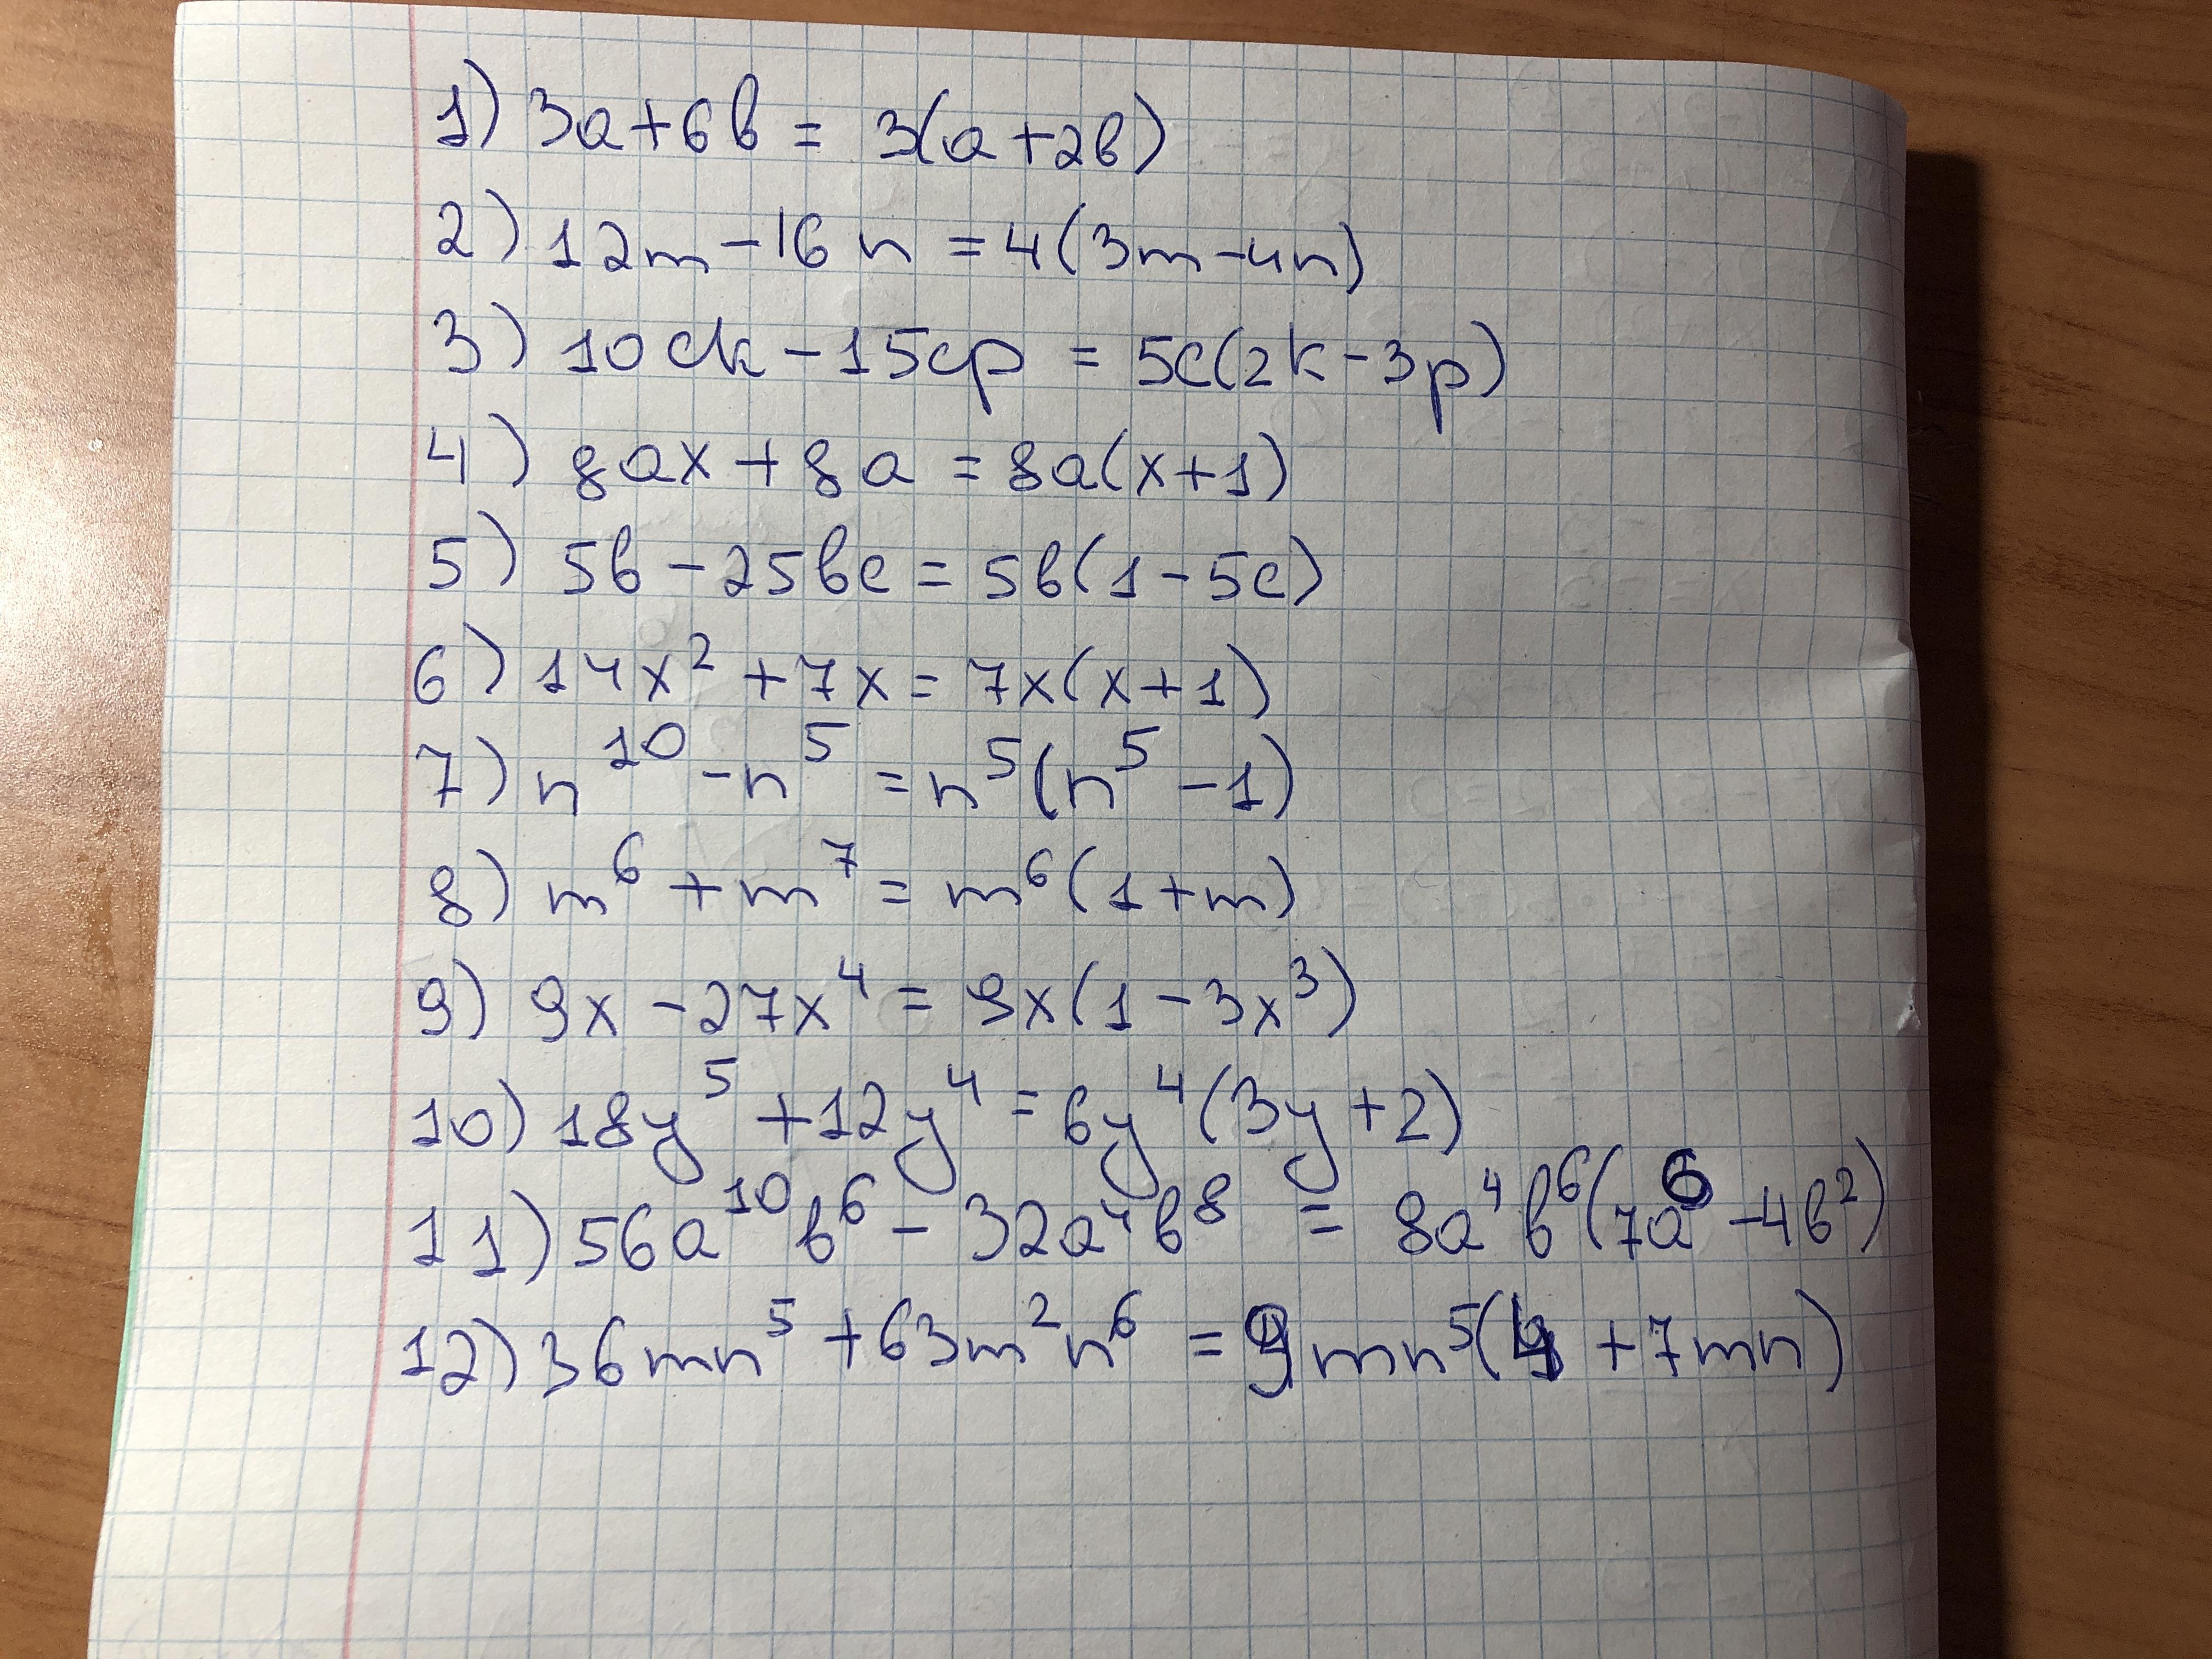 1) 3a+6b = 3(a+2b)
2) 12m-16n = 4(3m-4n)
3) 10ck-15cp = 5c(2k-3p)
4) 8ax+8a = 8a(x+1)
5) 5b-25bc = 5b(1-5c)
6) 14x²+7x = 7x(x+1)
7) n¹⁰-n⁵ = n⁵(n⁵-1)
8) m⁶+m⁷ = m⁶(1+m)
9) 9x-27x⁴ = 9x(1-3x³)
10) 18y⁵+12y⁴ = 6y⁴(3y+2)
11) 56a¹⁰b⁶-32a⁴b⁸ = 8a⁴b⁶(7a⁶-4b²)
12) 36mn⁵+63m²n⁶ = 9mn⁵(4+7mn)